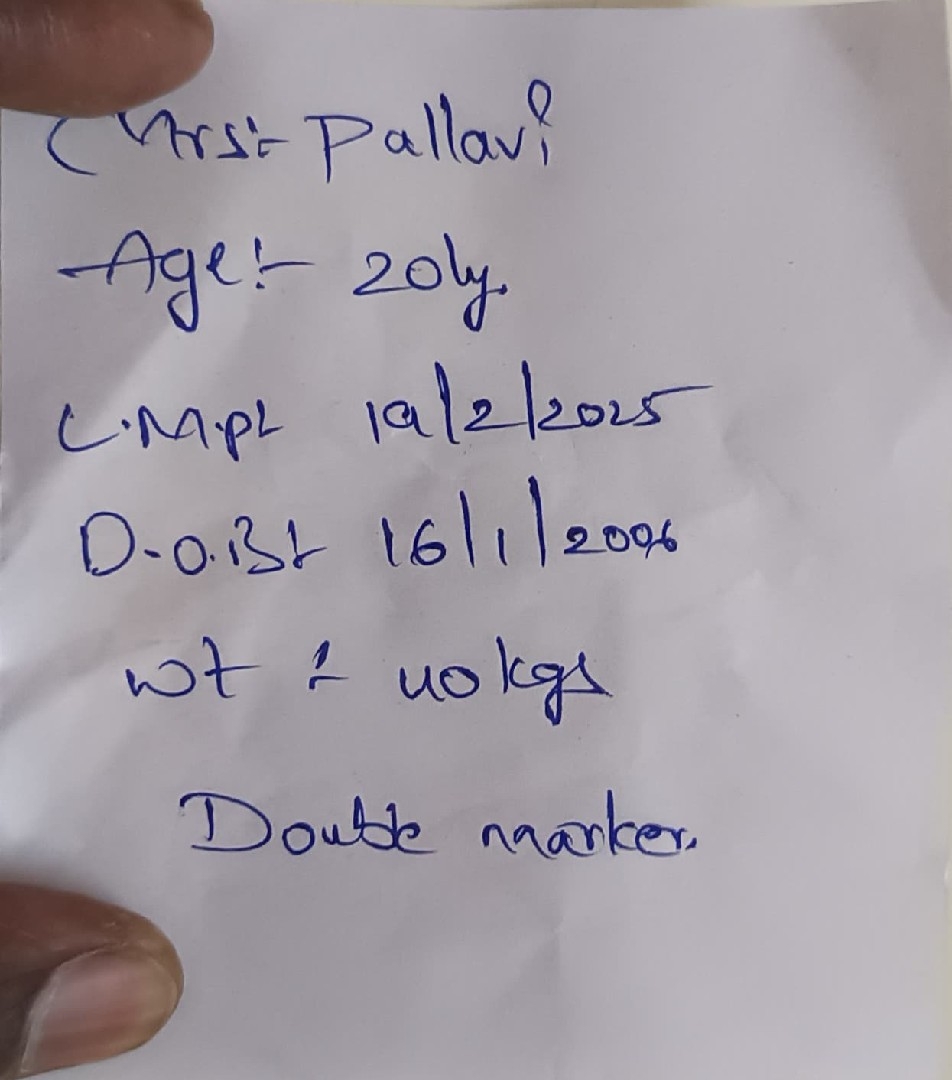 Mrs:- Pallavi
Age:- 20/y.
L.M.P:- 19/2/2025
D.O.B:- 16/1/2006
wt :- 40 kgs
Double marker.